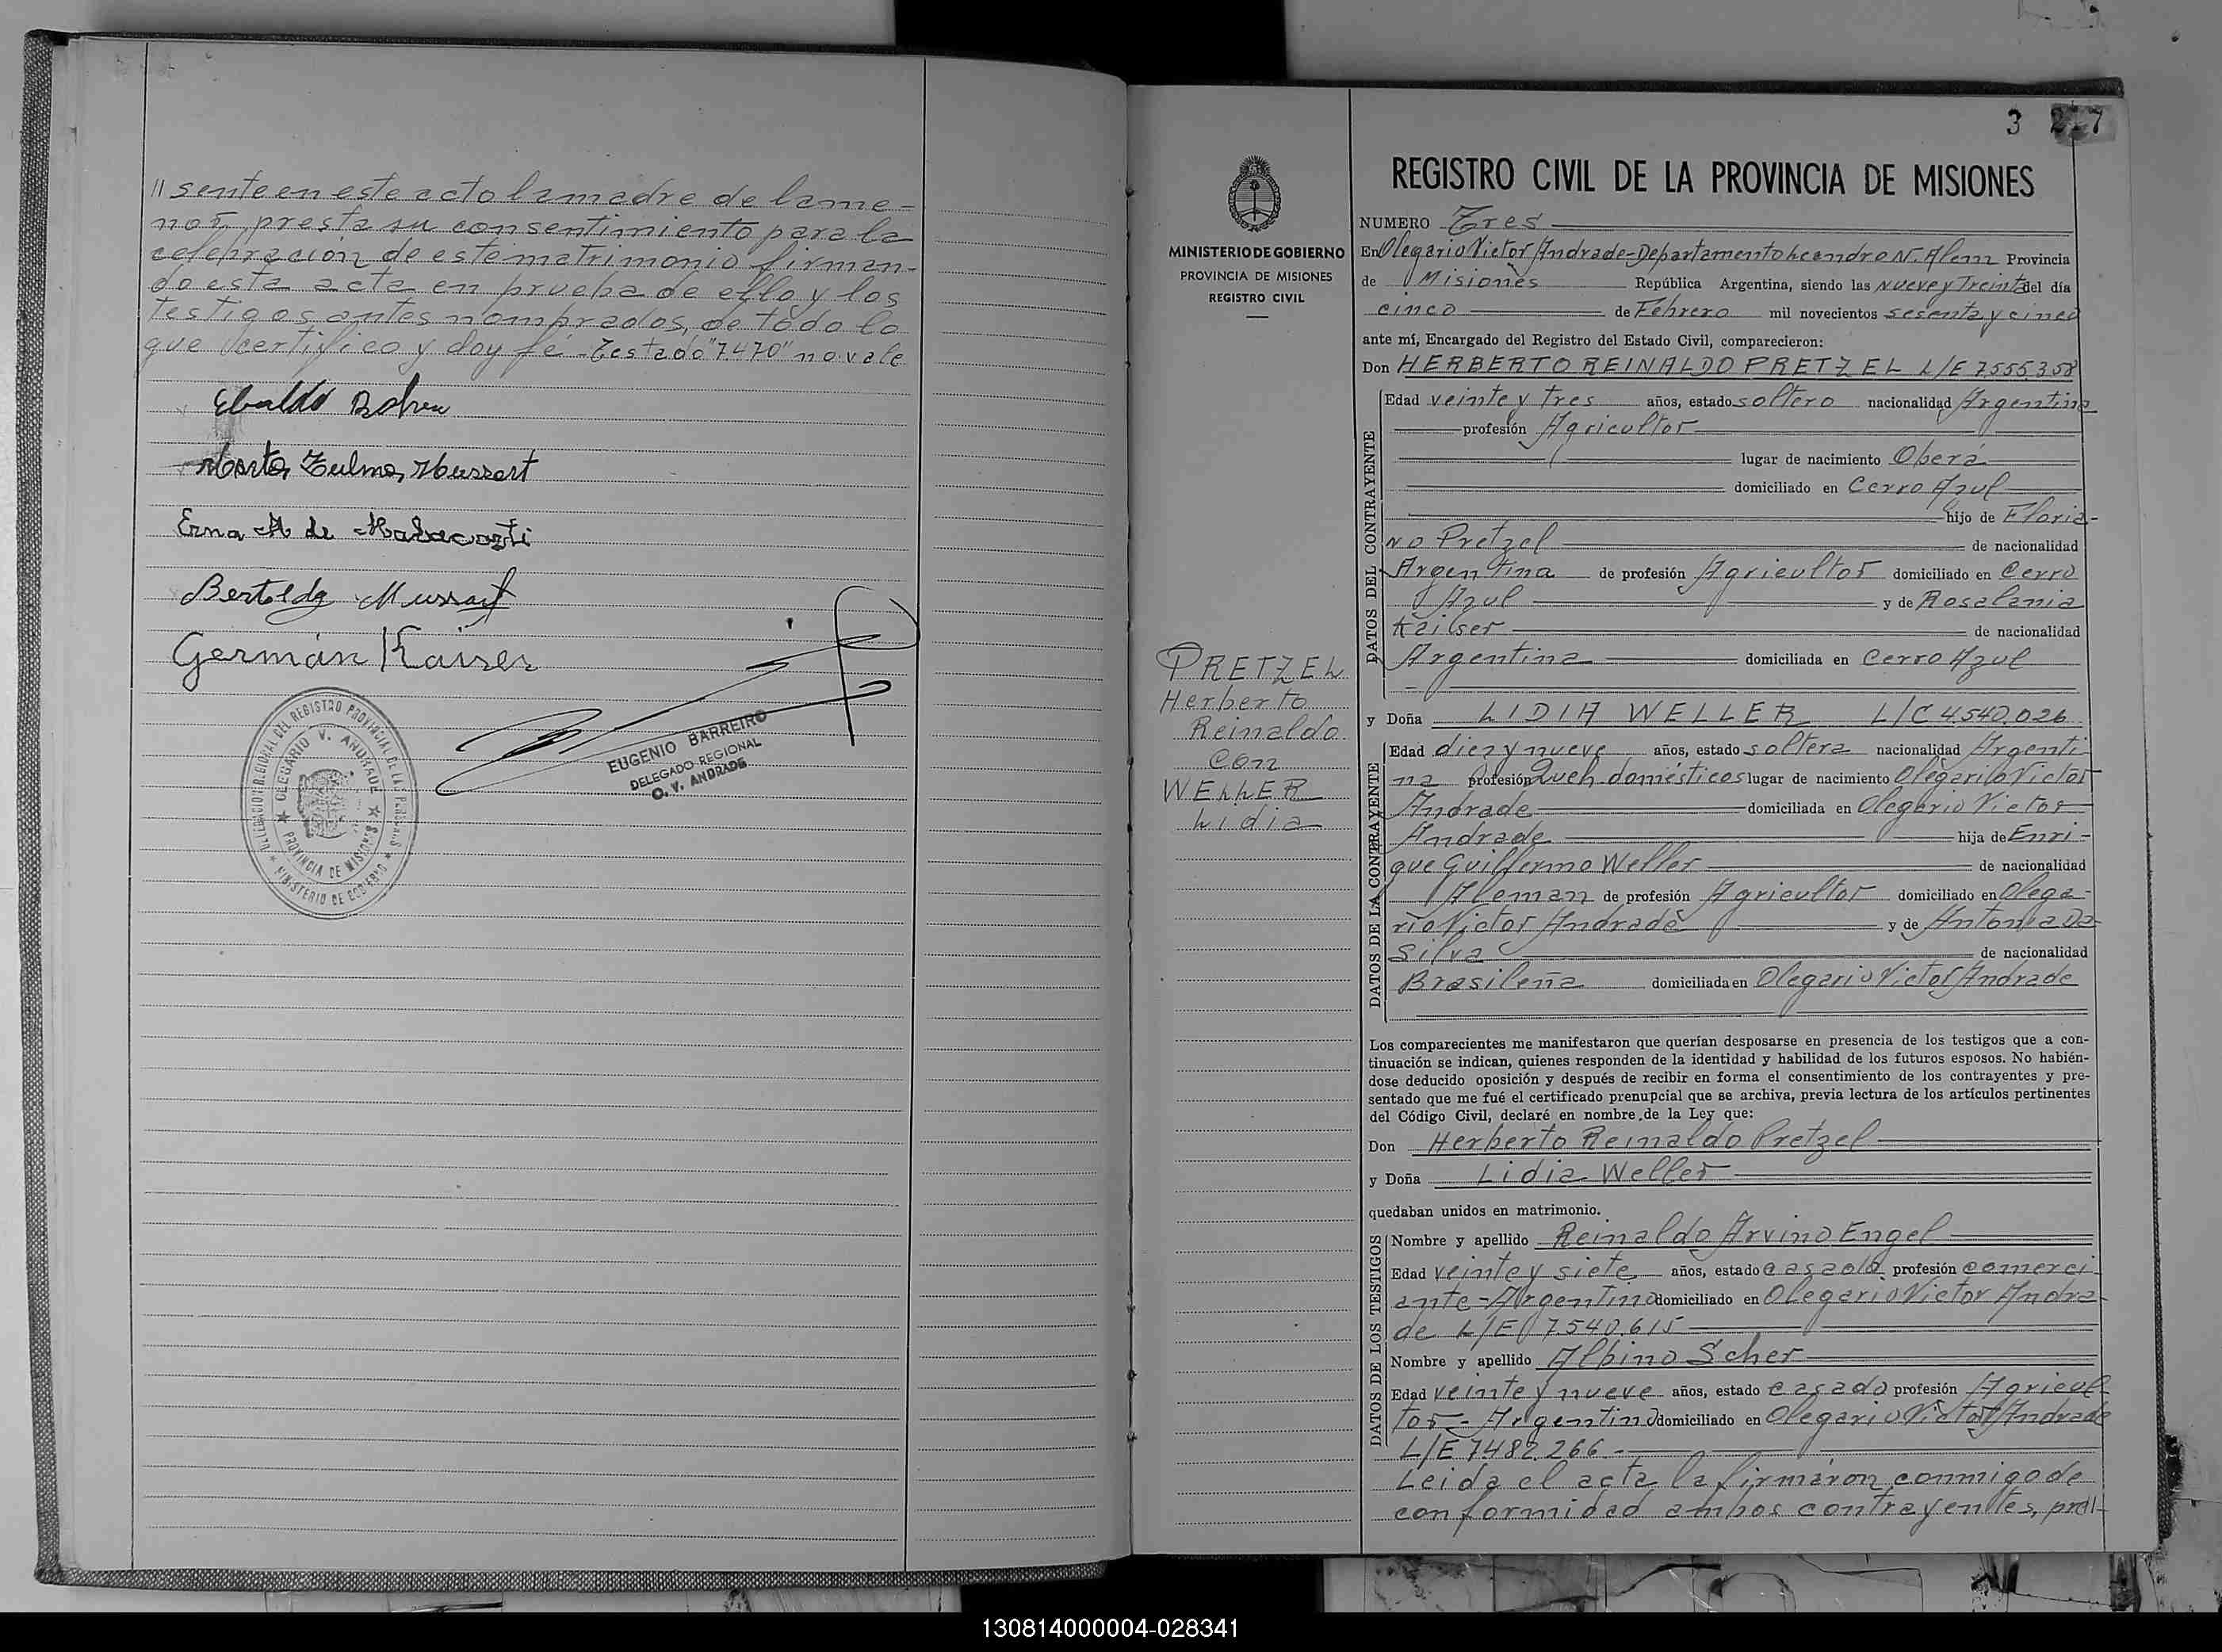 // sente en este acto la madre de la me-
nor, presta su consentimiento para la
celebración de este matrimonio firman-
do esta acta en prueba de ello y los
testigos antes nombrados, de todo lo
que certifico y doy fé - Testado "7470" no vale
Ebaldo
Marta Zulma Mussart
Erna A de
Bertoldo Mussart
Germán Kaiser
DELEGACION REGIONAL DEL REGISTRO PROVINCIAL DE LAS PERSONAS
OLEGARIO V. ANDRADE
PROVINCIA DE MISIONES
MINISTERIO DE GOBIERNO
EUGENIO BARREIRO
DELEGADO REGIONAL
O. V. ANDRADE
MINISTERIO DE GOBIERNO
PROVINCIA DE MISIONES
REGISTRO CIVIL
PRETZEL
Herberto
Reinaldo
con
WELLER
Lidia
3 217
REGISTRO CIVIL DE LA PROVINCIA DE MISIONES
NUMERO Tres
En Olegario Victor Andrade-Departamento Leandro N. Alem Provincia
de Misiones República Argentina, siendo las nueve y treinta del día
cinco de Febrero mil novecientos sesenta y cinco
ante mí, Encargado del Registro del Estado Civil, comparecieron:
Don HERBERTO REINALDO PRETZEL L/E 7.555.358
DATOS DEL CONTRAYENTE
Edad veinte y tres años, estado soltero nacionalidad Argentina
profesión Agricultor
lugar de nacimiento Oberá
domiciliado en Cerro Azul
hijo de Floria-
no Pretzel de nacionalidad
Argentina de profesión Agricultor domiciliado en Cerro
Azul y de Rosalania
Kailser de nacionalidad
Argentina domiciliada en Cerro Azul
y Doña LIDIA WELLER L/C 4.540.026
DATOS DE LA CONTRAYENTE
Edad diez y nueve años, estado soltera nacionalidad Argenti-
na profesión Queh. domésticos lugar de nacimiento Olegario Victor
Andrade domiciliada en Olegario Victor
Andrade hija de Enri-
que Guillermo Weller de nacionalidad
Aleman de profesión Agricultor domiciliado en Olega-
rio Victor Andrade y de Antonia Da
Silva de nacionalidad
Brasileña domiciliada en Olegario Victor Andrade
Los comparecientes me manifestaron que querían desposarse en presencia de los testigos que a con-
tinuación se indican, quienes responden de la identidad y habilidad de los futuros esposos. No habién-
dose deducido oposición y después de recibir en forma el consentimiento de los contrayentes y pre-
sentado que me fué el certificado prenupcial que se archiva, previa lectura de los artículos pertinentes
del Código Civil, declaré en nombre de la Ley que:
Don Herberto Reinaldo Pretzel
y Doña Lidia Weller
quedaban unidos en matrimonio.
DATOS DE LOS TESTIGOS
Nombre y apellido Reinaldo Arvino Engel
Edad veinte y siete años, estado casado profesión comerci-
ante-Argentino domiciliado en Olegario Victor Andra-
de L/E 7.540.615
Nombre y apellido Albino Scher
Edad veinte y nueve años, estado casado profesión Agricul-
tor-Argentino domiciliado en Olegario Victor Andrade
L/E 7482.266.-
Leida el acta la firmáron conmigo de
conformidad ambos contrayentes, pre//-
130814000004-028341